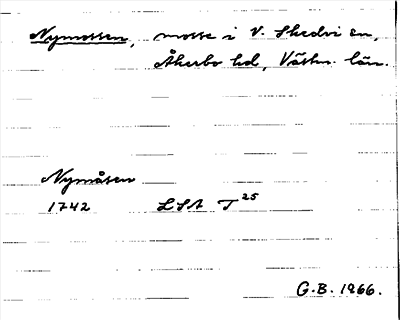 Nymossen, mosse i V. Skedvi sn,
Åkerbo hd, Västm. län.
Nymåsen
1742 LSA T 25
G.B. 1966.